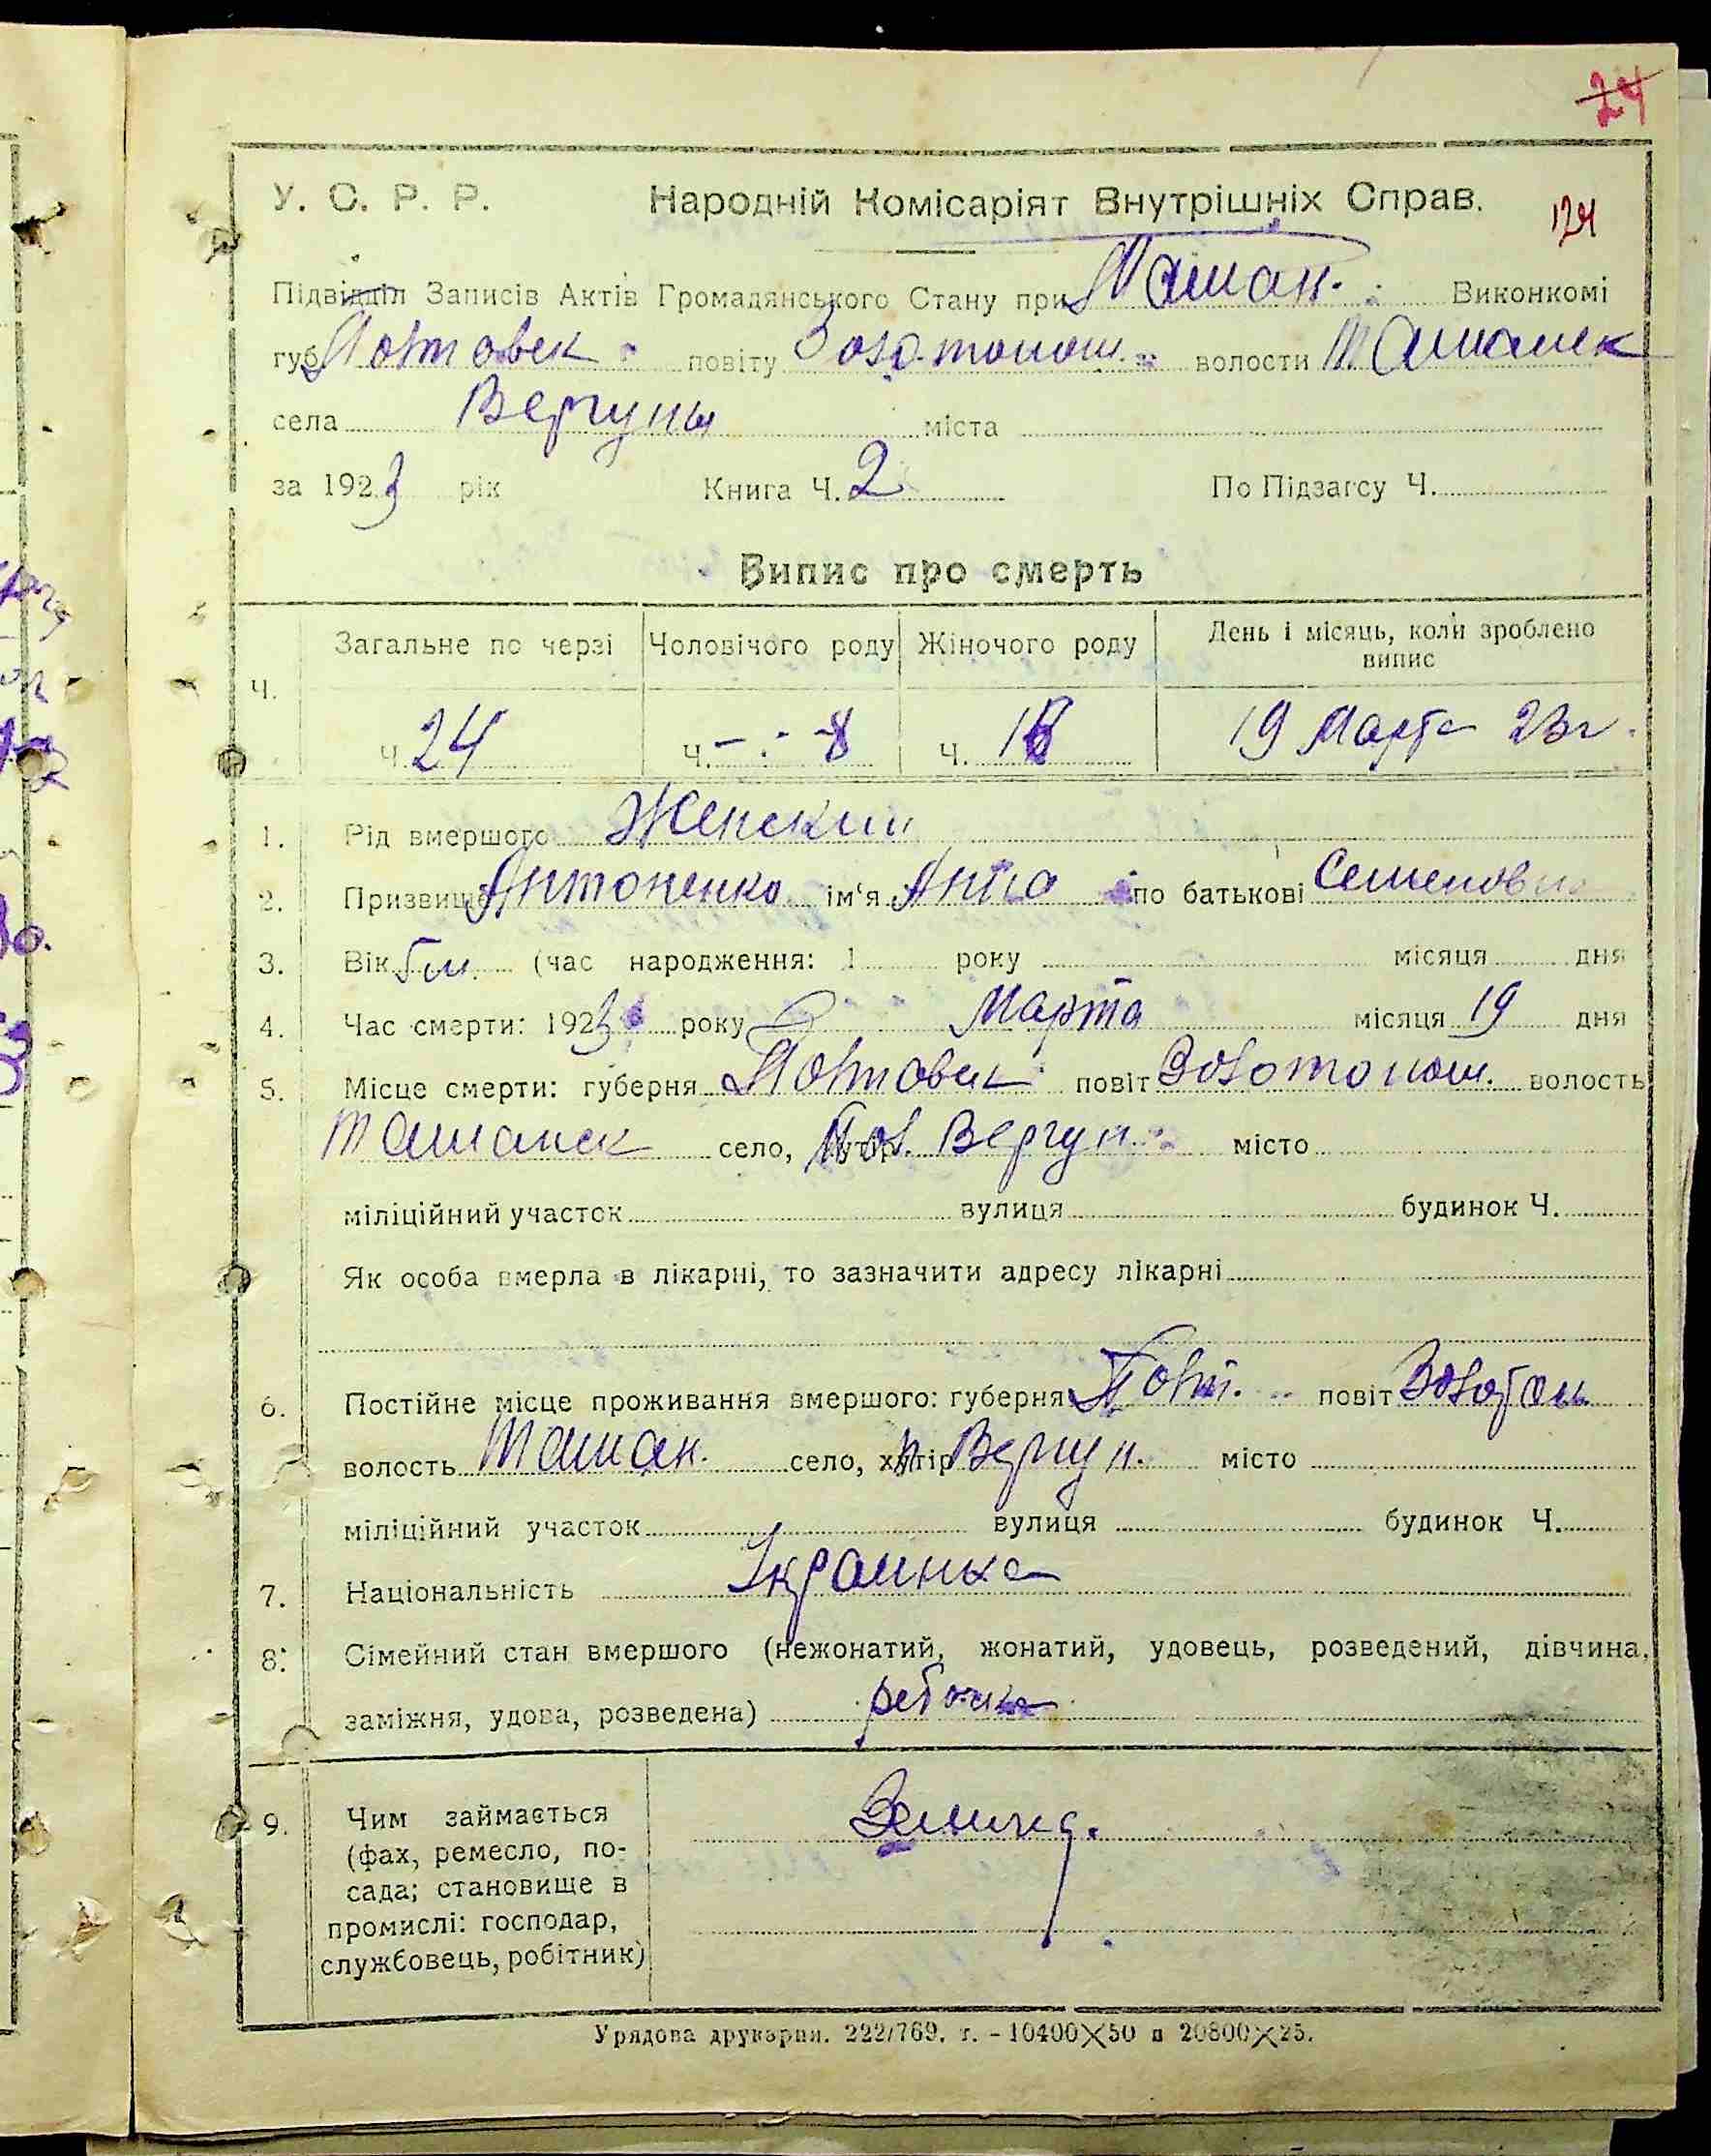 24
У. С. Р. Р. Народній Комісаріят Внутрішніх Справ.
124
Підвідділ Записів Актів Громадянського Стану при Ташан. Виконкомі
губ. Полтавск повіту Золотонош. волости Ташанск
села Вергуны міста
за 1923 рік Книга Ч. 2 По Підзагсу Ч.
Випис про смерть
Ч. Загальне по черзі Чоловічого роду Жіночого роду День і місяць, коли зроблено
випис
Ч. 24 Ч. 8 Ч. 19 Марта 23 г.
1. Рід вмершого Женский
2. Призвище Антоненко ім'я Анна по батькові Семеновна
3. Вік м. (час народження: 1 року місяця дня
4. Час смерти: 1923 року Марта місяця 19 дня
5. Місце смерти: губерня Полтавск повіт Золотонош. волость
Ташанск село, Вергун. місто
міліційний участок вулиця будинок Ч.
Як особа вмерла в лікарні, то зазначити адресу лікарні
6. Постійне місце проживання вмершого: губерня Полт. повіт Золотон
волость Ташан. село, хутір Вергун. місто
міліційний участок вулиця будинок Ч.
7. Національність Украинка
8. Сімейний стан вмершого (нежонатий, жонатий, удовець, розведений, дівчина,
заміжня, удова, розведена)
9. Чим займається
(фах, ремесло, по-
сада; становище в
промислі: господар,
службовець, робітник)
Урядова друкарня. 222/769. т. - 10400X50 и 20800X25.